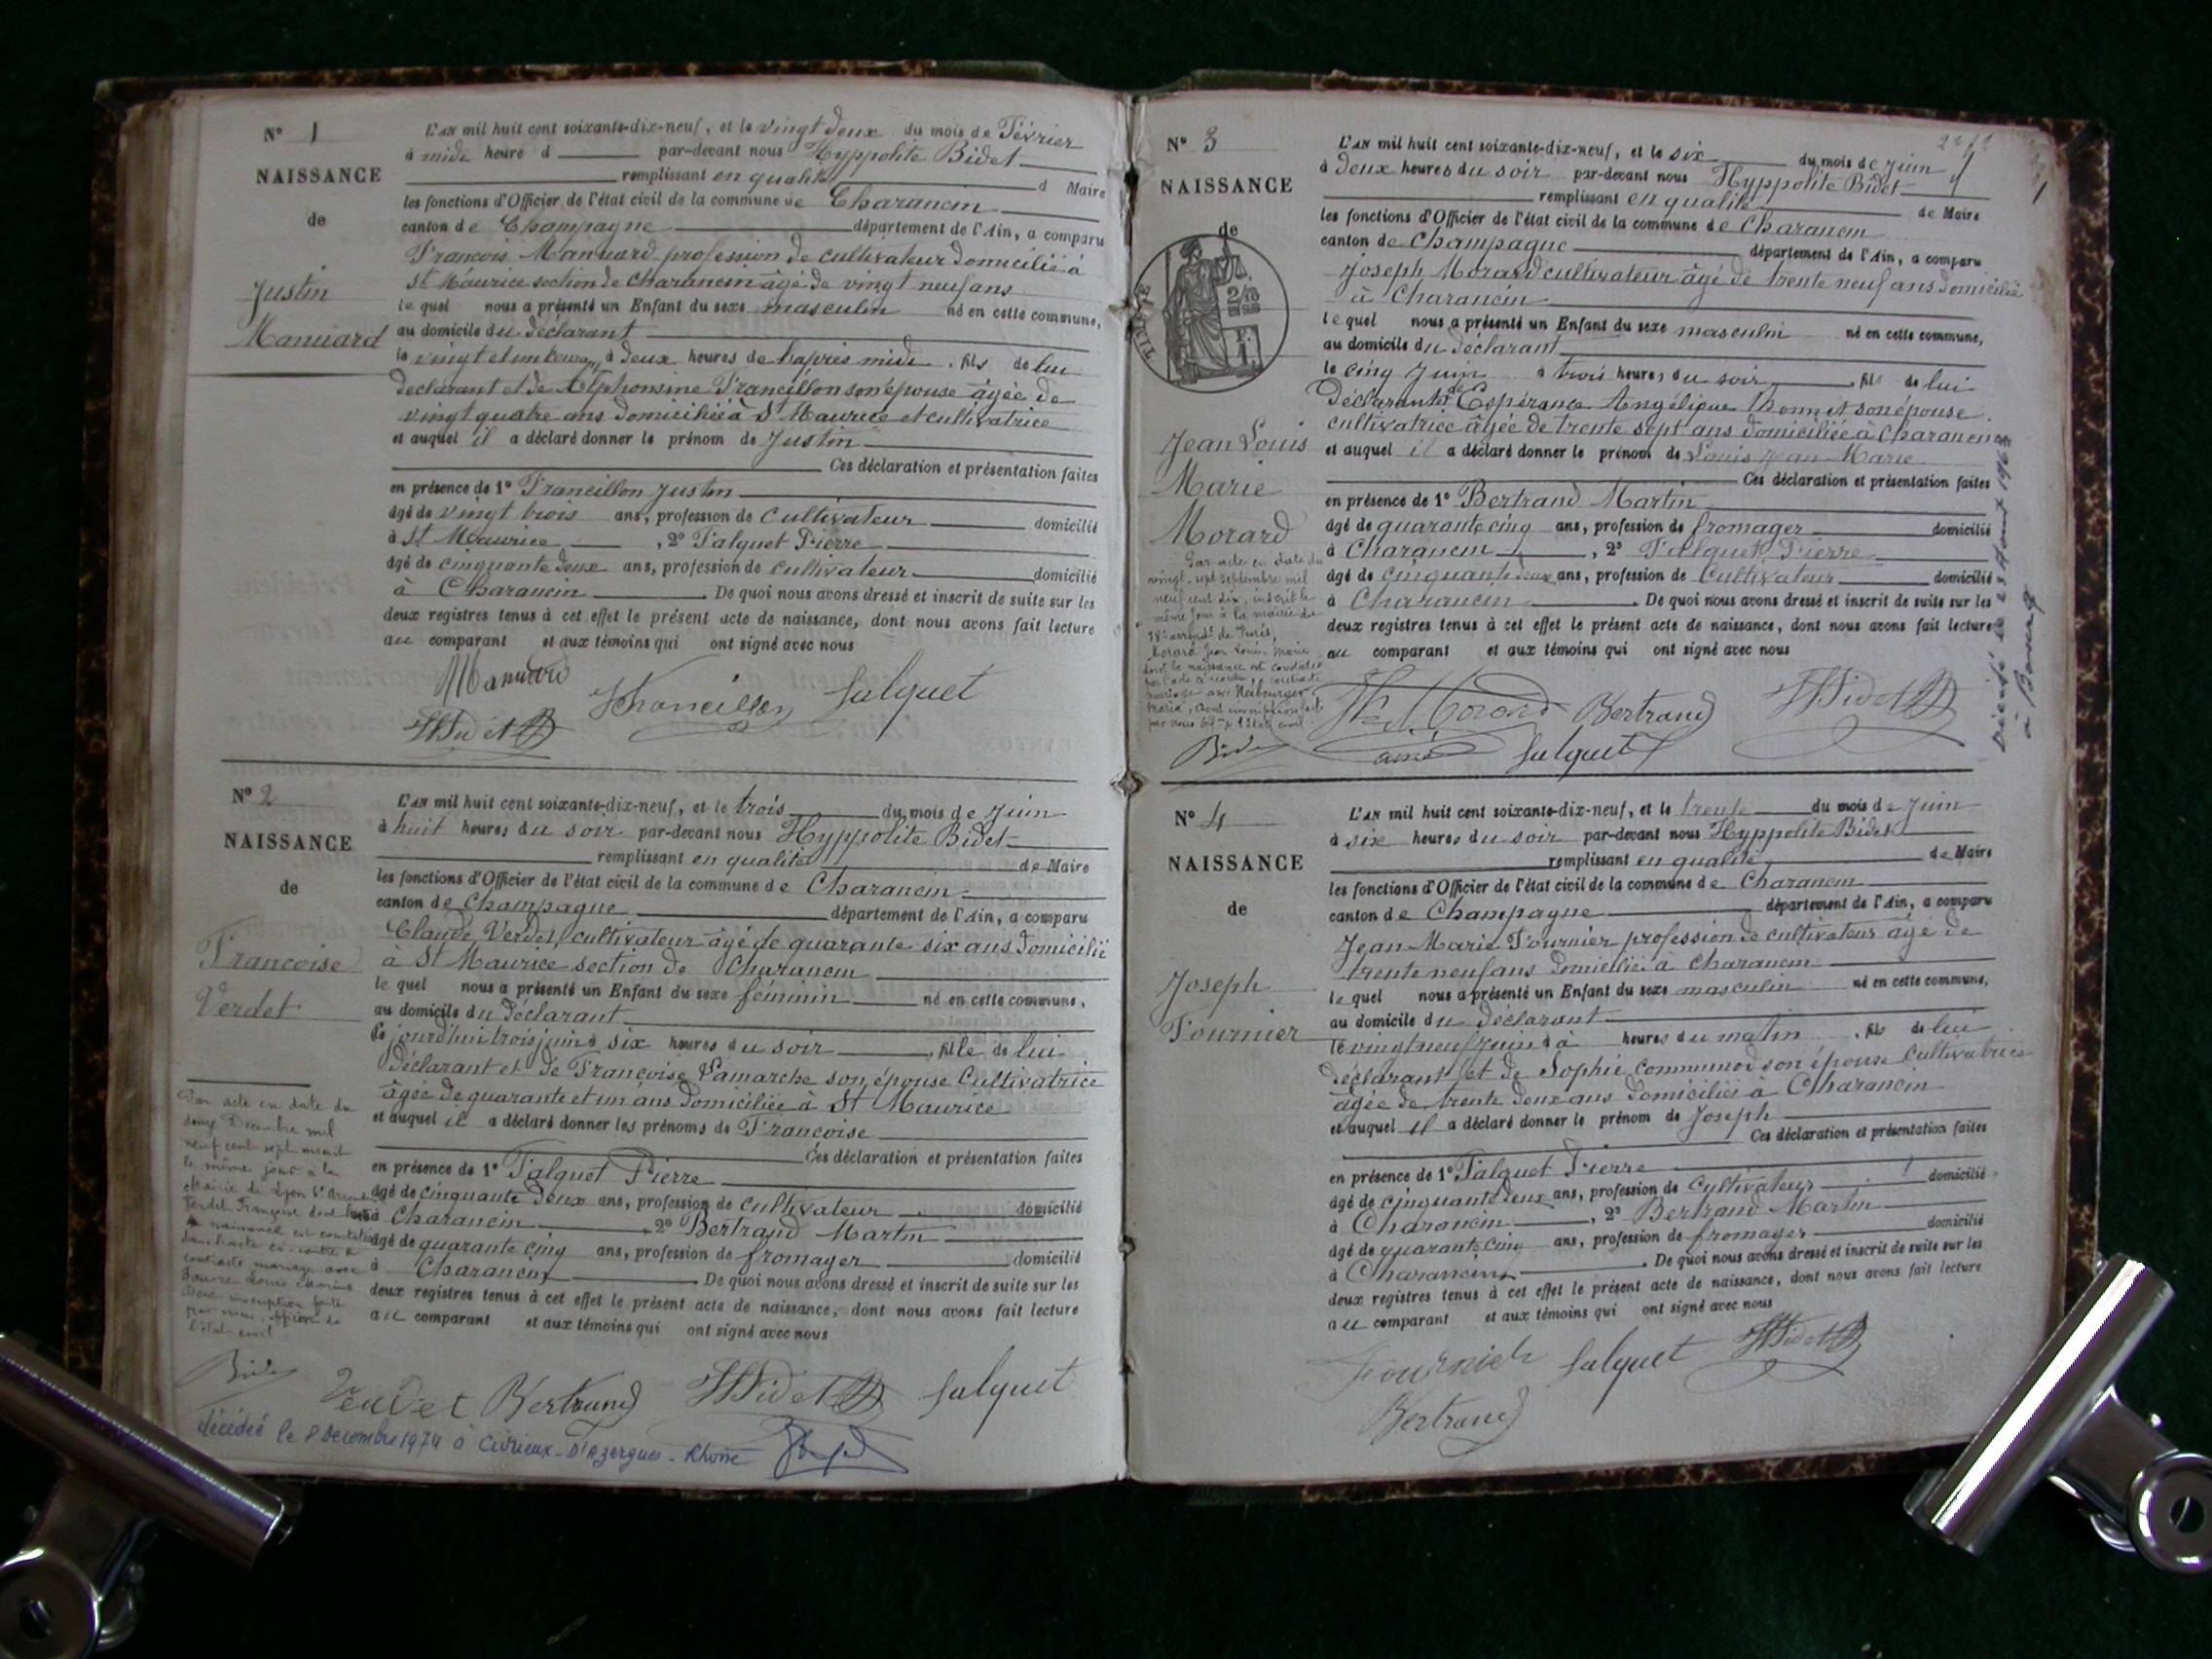 N° 1
NAISSANCE
de
Justin
Manuard
L'AN mil huit cent soixante-dix-neuf, et le vingt deux du mois de Février
à midi heure d par-devant nous Hyppolite Bidet
remplissant en qualité d Maire
les fonctions d'Officier de l'état civil de la commune de Charancin
canton de Champagne département de l'Ain, a comparu
François Manuard profession de cultivateur domicilié à
St Maurice section de Charancin âgé de vingt neuf ans
le quel nous a présenté un Enfant du sexe masculin né en cette commune,
au domicile du déclarant
le vingt et un à deux heures de l'après midi, fils de lui
déclarant et de Alphonsine Francillon son épouse âgée de
vingt quatre ans domiciliée à St Maurice et cultivatrice
et auquel il a déclaré donner le prénom de Justin
Ces déclaration et présentation faites
en présence de 1° Francillon Justin
âgé de vingt trois ans, profession de cultivateur domicilié
à St Maurice, 2° Falquet Pierre
âgé de cinquante deux ans, profession de cultivateur domicilié
à Charancin De quoi nous avons dressé et inscrit de suite sur les
deux registres tenus à cet effet le présent acte de naissance, dont nous avons fait lecture
au comparant et aux témoins qui ont signé avec nous
Manuard
Francillon falquet
HBidet
N° 2
NAISSANCE
de
Françoise
Verdet
L'AN mil huit cent soixante-dix-neuf, et le trois du mois de Juin
à huit heures du soir par-devant nous Hyppolite Bidet
remplissant en qualité de Maire
les fonctions d'Officier de l'état civil de la commune de Charancin
canton de Champagne département de l'Ain, a comparu
Claude Verdet, cultivateur âgé de quarante six ans domicilié
à St Maurice section de Charancin
le quel nous a présenté un Enfant du sexe féminin né en cette commune,
au domicile du déclarant
Ce jourd'hui trois juin à six heures du soir, fille de lui
déclarant et de Françoise Lamarche son épouse Cultivatrice
âgée de quarante et un ans domiciliée à St Maurice
et auquel il a déclaré donner les prénoms de Françoise
Ces déclaration et présentation faites
en présence de 1° Falquet Pierre
âgé de cinquante deux ans, profession de cultivateur domicilié
à Charancin 2° Bertrand Martin
âgé de quarante cinq ans, profession de fromager domicilié
à Charancin De quoi nous avons dressé et inscrit de suite sur les
deux registres tenus à cet effet le présent acte de naissance, dont nous avons fait lecture
au comparant et aux témoins qui ont signé avec nous
Par acte en date du
douze Décembre mil
neuf cent sept inscrit
le même jour à la
Mairie de Lyon
Verdet Françoise dont la
naissance est constatée
dans l'acte ci-contre a
contracté mariage avec
Favre Louis Marius
Dont inscription faite
par nous, officier de
l'état civil.
Bidet
Verdet Bertrand HBidet falquet
décédée le 8 Décembre 1974 à Civrieux-D'Azergues - Rhône
N° 3
NAISSANCE
de
TIMBRE
Jean Louis
Marie
Morard
L'AN mil huit cent soixante-dix-neuf, et le six du mois de Juin
à deux heures du soir par-devant nous Hyppolite Bidet
remplissant en qualité de Maire
les fonctions d'Officier de l'état civil de la commune de Charancin
canton de Champagne département de l'Ain, a comparu
Joseph Morard cultivateur âgé de trente neuf ans domicilié
à Charancin
le quel nous a présenté un Enfant du sexe masculin né en cette commune,
au domicile du déclarant
le cinq Juin à trois heures du soir, fils de lui
déclarant et de Espérance Angélique son épouse
cultivatrice âgée de trente sept ans domiciliée à Charancin
et auquel il a déclaré donner le prénom de Louis Jean Marie
Ces déclaration et présentation faites
en présence de 1° Bertrand Martin
âgé de quarante cinq ans, profession de fromager domicilié
à Charancin, 2° Falquet Pierre
âgé de cinquante deux ans, profession de Cultivateur domicilié
à Charancin. De quoi nous avons dressé et inscrit de suite sur les
deux registres tenus à cet effet le présent acte de naissance, dont nous avons fait lecture
au comparant et aux témoins qui ont signé avec nous
Par acte en date du
vingt-sept septembre mil
neuf cent dix, inscrit le
même jour à la mairie du
18e arrondt de Paris,
Morard Jean Louis Marie
dont la naissance est constatée
par l'acte ci-contre, a contracté
mariage avec Neibourger
Maria, dont inscription faite
par nous de l'état civil.
Bidet
Morard Bertrand HBidet
ainé falquet
Décédé le 23 Août
à Bourg
N° 4
NAISSANCE
de
Joseph
Fournier
L'AN mil huit cent soixante-dix-neuf, et le trente du mois de Juin
à six heures du soir par-devant nous Hyppolite Bidet
remplissant en qualité de Maire
les fonctions d'Officier de l'état civil de la commune de Charancin
canton de Champagne département de l'Ain, a comparu
Jean-Marie Fournier profession de cultivateur âgé de
trente neuf ans domicilié à Charancin
le quel nous a présenté un Enfant du sexe masculin né en cette commune,
au domicile du déclarant
le vingt neuf Juin à heures du matin, fils de lui
déclarant et de Sophie son épouse Cultivatrice
âgée de trente deux ans domiciliée à Charancin
et auquel il a déclaré donner le prénom de Joseph
Ces déclaration et présentation faites
en présence de 1° Falquet Pierre
âgé de cinquante deux ans, profession de Cultivateur domicilié
à Charancin, 2° Bertrand Martin
âgé de quarante cinq ans, profession de fromager domicilié
à Charancin. De quoi nous avons dressé et inscrit de suite sur les
deux registres tenus à cet effet le présent acte de naissance, dont nous avons fait lecture
au comparant et aux témoins qui ont signé avec nous
Fournier falquet HBidet
Bertrand